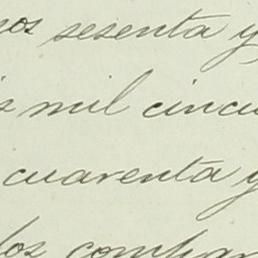 sesenta y
mil cincu
cuarenta y
los compar